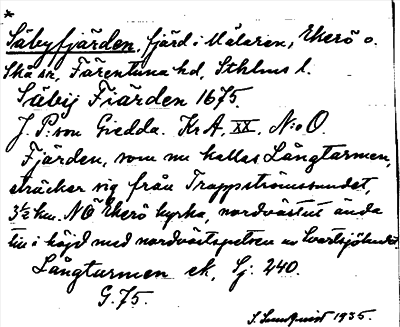 *
Säbyfjärden, fjärd i Mälaren, Ekerö o.
Skå sn, Färentuna hd, Sthlms l.
Säbij Fiärden 1675.
J. P:son Giedda. Kr A. XX. N:o O.
Fjärden, som nu kallas Långtarmen,
sträcker sig från Trappströmssundet,
3½ km. NÖ Ekerö kyrka, nordvästut ända
till i höjd med nordvästspetsen av Svartsjölandet.
Långtarmen ek. Sj. 240.
G. 75.
S. Sundqvist 1935.